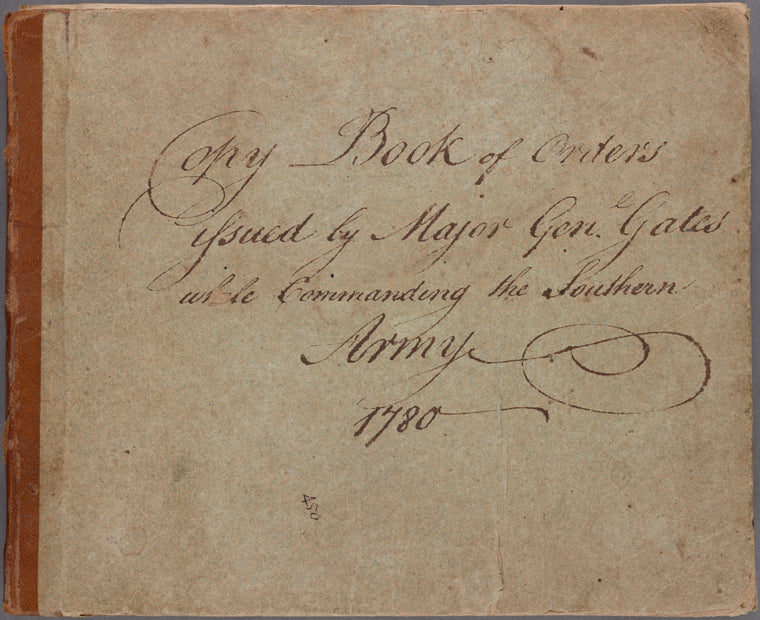 Copy Book of Orders
issued by Major Gen.l Gates
while Commanding the Southern
Army
1780
450